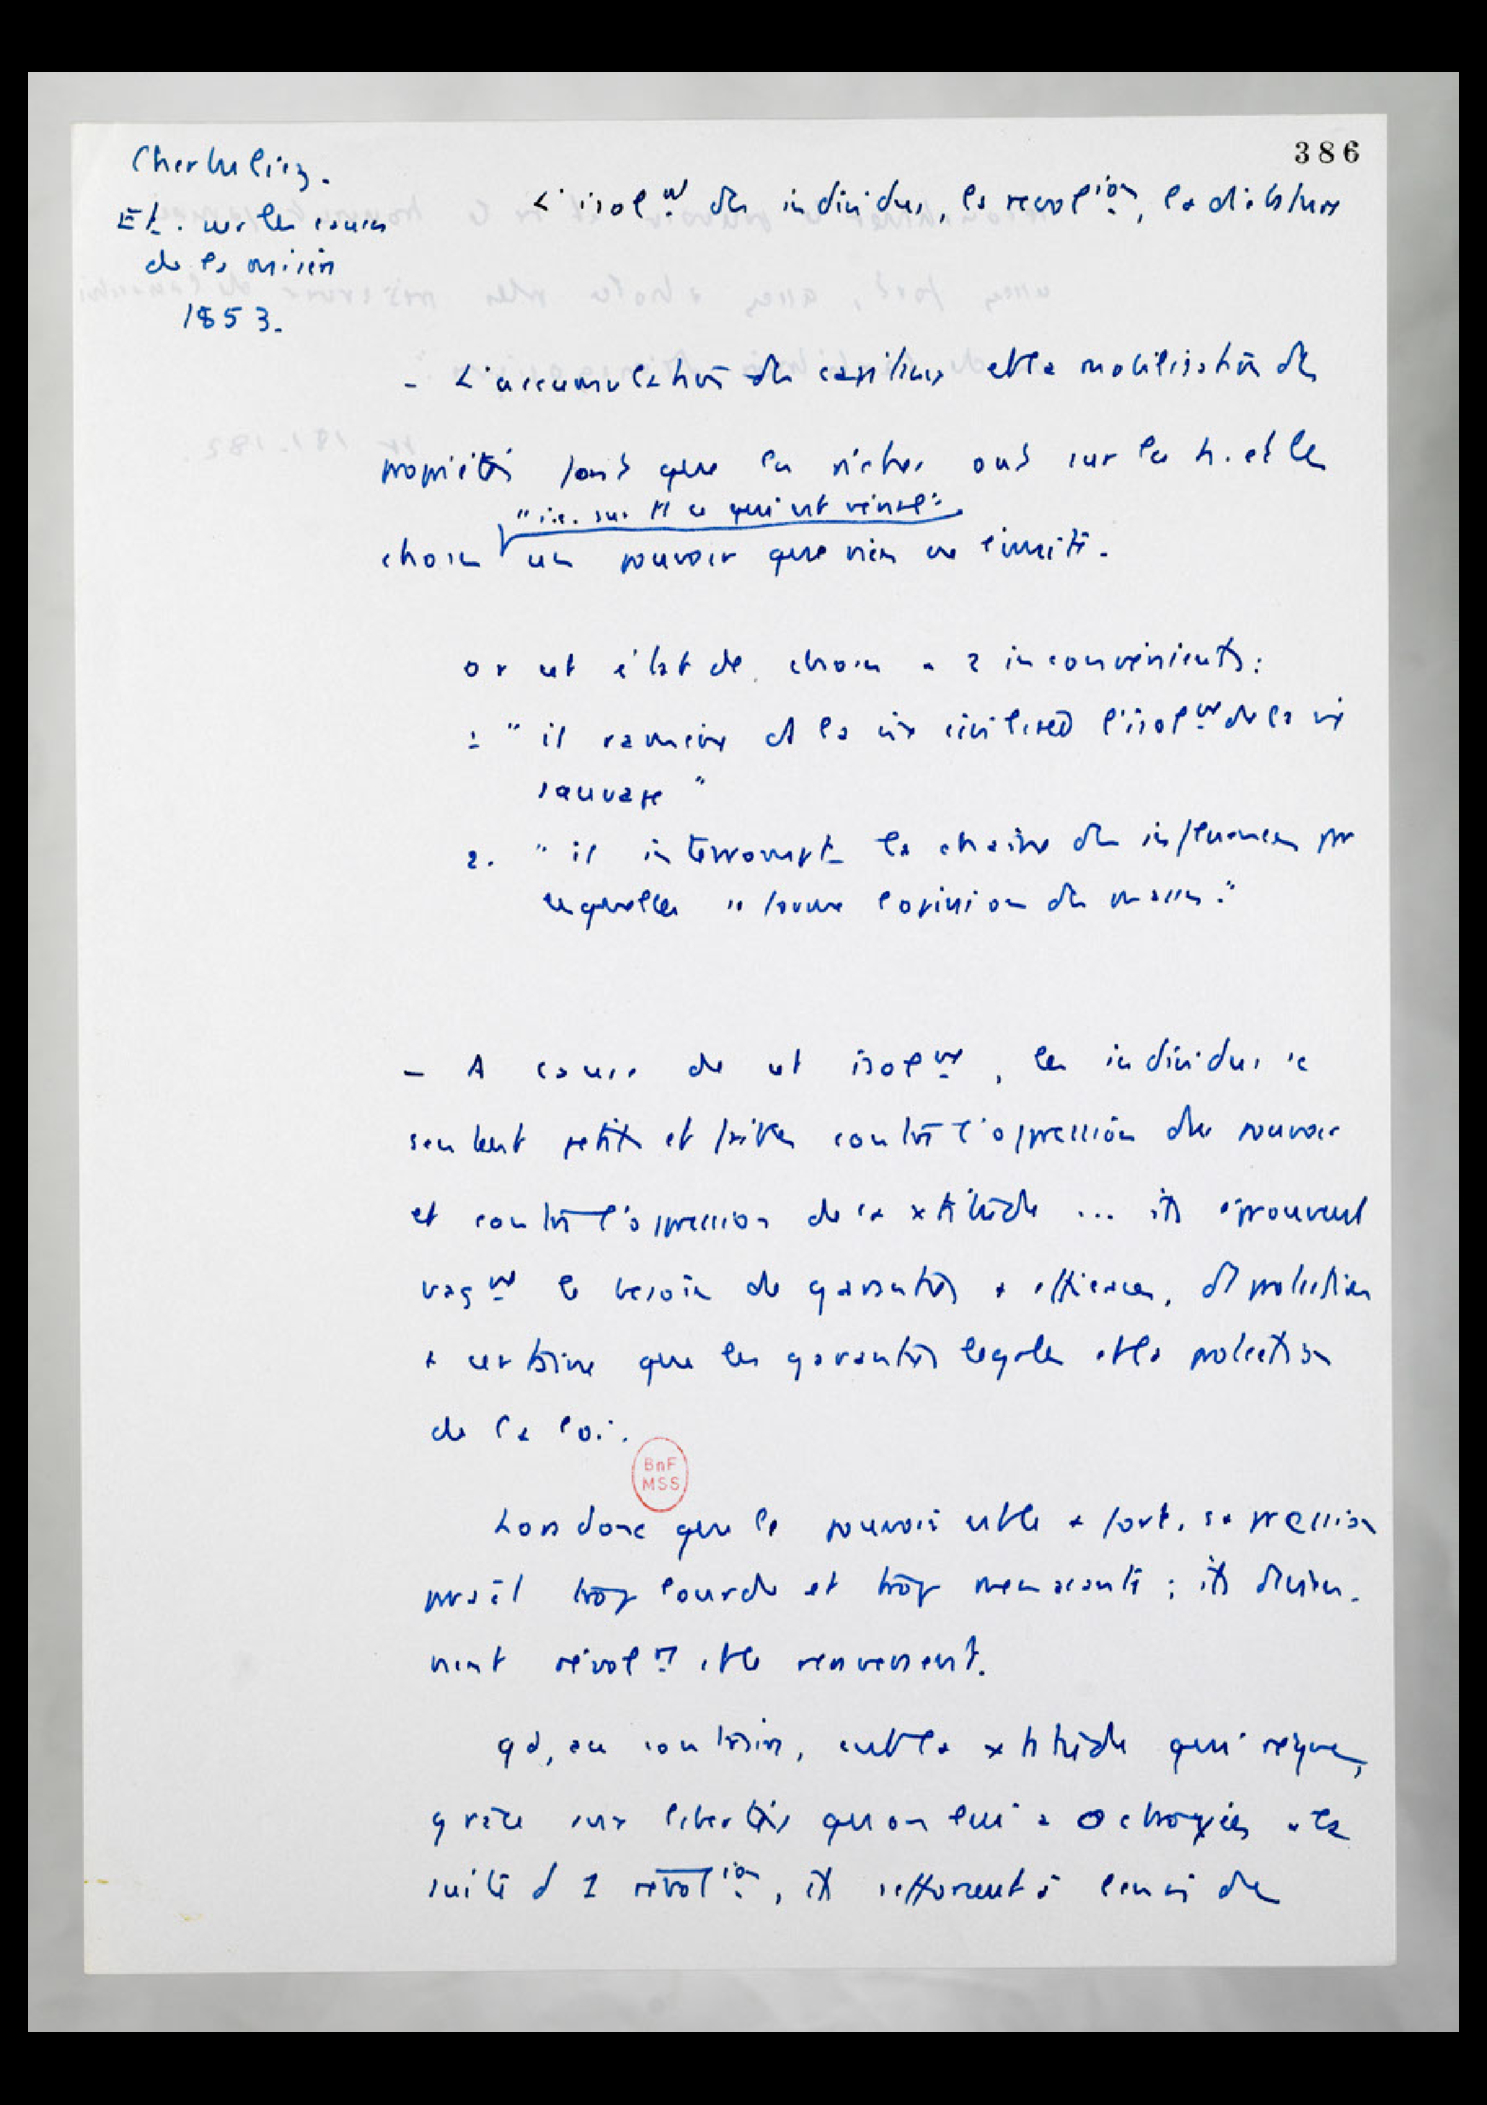 386
Cherbuliez.
Et. sur les causes
de la misère
1853.
L'isolnt des individus, la revolion, la dictature
- L'accumulation des capitaux et la mobilisation des
propriétés font que les riches ont sur les h. et les
"i.e. sur tt ce qui est vénal"
choses un pouvoir que rien ne limite.
or cet état de choses a 2 inconvénients:
1 "il ramène ds la vie civilisée l'isolnt de la vie
sauvage"
2. "il interrompt la chaîne des influences par
lesquelles se forme l'opinion des masses."
- A cause de cet isolnt, les individus se
sentent petits et faibles contre l'oppression du pouvoir
et contre l'oppression de la xtitude ... ils éprouvent
vagnt le besoin de garanties + efficaces, de protection
+ certaine que les garanties légales et la protection
de la loi.
BnF
MSS
Lors donc que le pouvoir est le + fort, sa pression
paraît trop lourde et trop menaçante ; ils devien-
nent révolres et le renversent.
qd, au contraire, c'est la xtitude qui règne,
grâce aux libertés qu'on lui a octroyées à la
suite d 1 révolion, ils s'efforcent à l'envi de